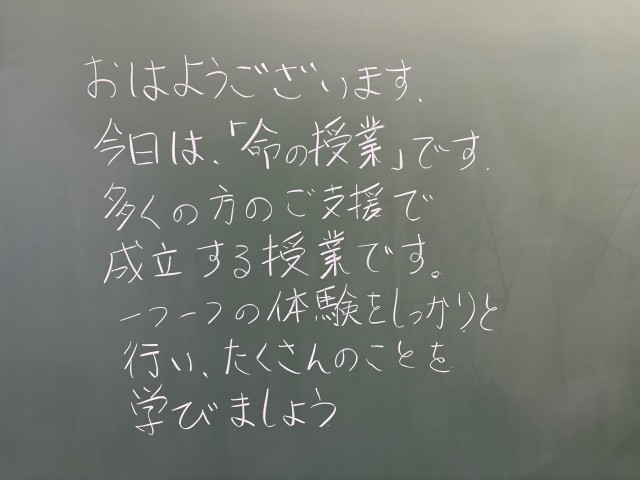 おはようございます.
今日は、「命の授業」です.
多くの方のご支援で
成立する授業です。
一つ一つの体験をしっかりと
行い、たくさんのことを
学びましょう